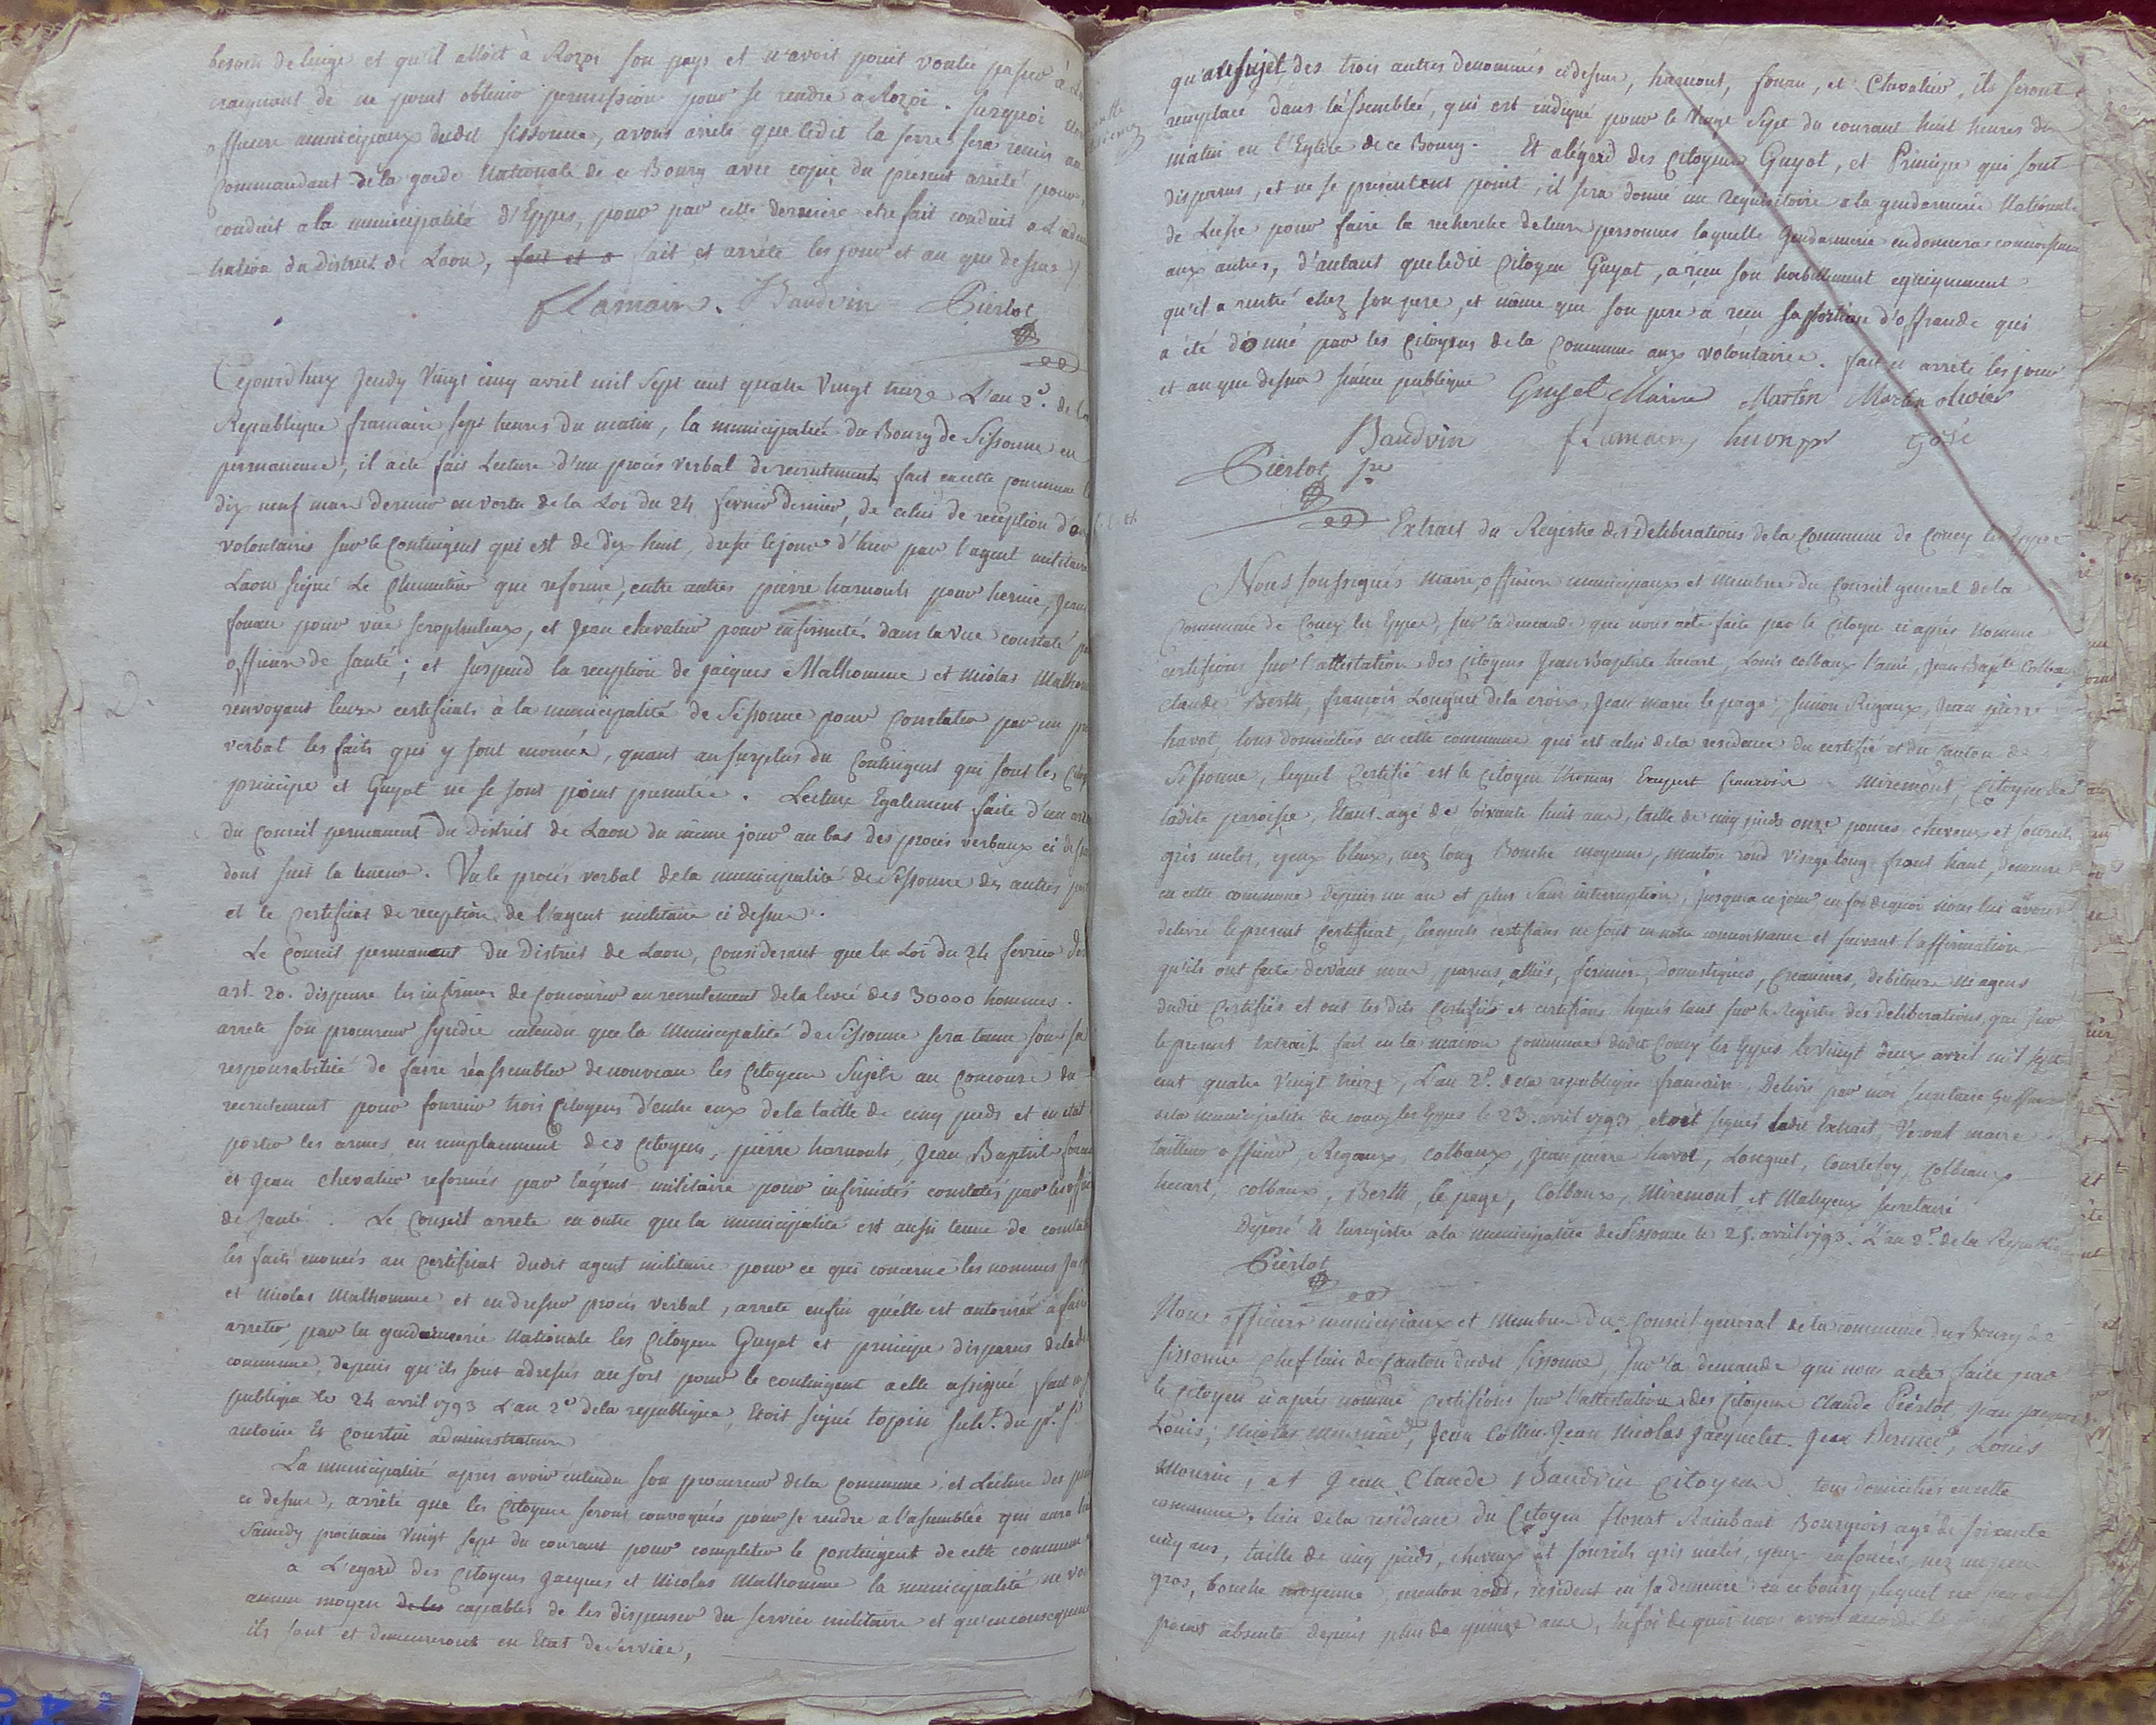 besoin de linge et qu'il alloit à Rozoi son pays et n'avoit point voulu passer à
craignant de ne point obtenir permission pour se rendre a Rozoi. Surquoi
officiers municipaux dudit Sissonne, avons arreté que ledit la serre sera remis au
Commandant dela garde Nationale de ce Bourg avec copie du présent arrêté pour
conduit a la municipalité d'Eppes, pour par cette derniere etre fait conduit a
tration du District de Laon, fait et a fait et arrêté les jour et an que dessus
flamain. Baudoin Pierlot
Cejourd'huy Jeudy Vingt cinq avril mil Sept cent quatre Vingt treize L'an 2e. de la
Republique francaise sept heures du matin, la municipalité du Bourg de Sissonne en
permanence, il a eté fait Lecture d'un procès verbal de recrutement fait en cette commune le
dix neuf mars dernier en vertu de la Loi du 24 fevrier dernier, de celui de reception d
volontaires sur le Contingent qui est de dix huit, dressé le jour d'hier par l'agent militaire
Laon signé Le Cheuntier qui reforme, entre autres pierre harnouls pour hernie, Jean
fonau pour vue scrophuleux, et Jean chevalier pour infirmité dans la vue constaté
officiers de santé ; et suspend la reception de jacques Malhomme et nicolas
renvoyant leurs certificats à la municipalité de Sissonne pour Constater par un
verbal les faits qui y sont enoncés, quant au surplus du Contingent qui sont les
principe et Guyot ne se sont point presentés. Lecture Egalement faite d'un
du Conseil permanent du District de Laon du meme jour au bas des procès verbaux ci
dont suit la teneur. Vu le procès verbal dela municipalité de Sissonne des autres
et le certificat de reception de l'agent militaire ci dessus.
Le Conseil permanent du District de Laon, Considerant que la Loi du 24 fevrier
art. 20. dispense les infirmes de Concourir au recrutement dela levée des 30000 hommes.
arrete son procureur syndic entendu que la Municipalité de Sissonne sera tenue sous sa
responsabilité de faire réassembler de nouveau les Citoyens Sujets au Concours du
recrutement pour fournir trois Citoyens d'entre eux dela taille de cinq pieds et en etat
porter les armes en remplacement des Citoyens, pierre harnouls, Jean Baptiste
et Jean Chevalier reformés par l'agent militaire pour infirmités constatés par les
de santé. Le Conseil arrete en outre que la municipalité est aussi tenue de
les faits enoncés au Certificat dudit agent militaire pour ce qui concerne les nommés
et nicolas Malhomme et en dresser procès verbal, arrete enfin qu'elle est autorisée à faire
arreter, par la gendarmerie Nationale les Citoyens Guyot et principe disparus dela
commune, depuis qu'ils sont adressés au sort pour le contingent a elle assigné fait
publique le 24 avril 1793 L'an 2e dela republique, Etoit signé topin
antoine Et Courtin administrateurs
La municipalité après avoir entendu son procureur dela Commune, et Lecture des
ci dessus, arrêté que les Citoyens seront convoqués pour se rendre a l'assemblée qui aura
Samedy prochain Vingt sept du courant pour completer le contingent de cette commune
a L'egard des Citoyens Jacques et Nicolas Malhomme la municipalité ne
aucun moyen de les capables de les dispenser du service militaire et qu'en
ils sont et demeureront en Etat de Service,
2.
qu'au sujet des trois autres denommés ci dessus, harnout, fonau, et Chevalier, ils seront
remplacé dans l'assemblée, qui est indiqué pour le Vingt Sept du courant huit heures du
matin en l'Eglise de ce Bourg. Et a légard des Citoyens Guyot, et Principe qui sont
disparus, et ne se présentent point, il sera donné un requisitoire a la gendarmerie Nationale
de Liesse pour faire la recherche de leurs personnes laquelle Gendarmerie en donnera
aux autres, d'autant que ledit Citoyen Guyot, a reçu son habillement
qu'il a rentré chez son pere, et même que son pere a reçu sa portion d'offrande qui
a été donné par les Citoyens de la Commune aux volontaires. fait et arrêté les jour
et an que dessus seance publique Maire Martin Martin olivier
Baudoin flamain
Pierlot
Extrait du Registre des Deliberations de la Commune de Coucy les Eppes
Nous soussignés maire, officiers municipaux et membres du Conseil general dela
Commune de Coucy les Eppes, sur la demande qui nous a été faite par le Citoyen ci après nommé
certifions sur l'attestation des Citoyens Jean Baptiste hecart, Louis colbaux l'ainé, Jean Baptte Colbaux
claude Berth, françois Longuet dela croix, Jean marie le page, Simon Rigaux, Jean pierre
havot, tous domiciliés en cette commune qui est celui dela residence du certifié et du Canton de
Sissonne, lequel Certifié est le Citoyen thomas francois Miremont, Citoyen de
ladite paroisse, Etant agé de soixante huit ans, taille de cinq pieds onze pouces, cheveux et sourcils
gris meles, yeux bleux, nez long Bouche moyenne, menton rond visage long front haut, demeure
en cette commune depuis un an et plus sans interruption, jusqu'a ce jour en foi de quoi nous lui avons
delivré le present Certificat, lesquels certifians ne sont en notre connoissance et suivant l'affirmation
qu'ils ont faite devant nous, parens, alliés, fermiers, domestiques, Créanciers, debiteurs ni agens
dudit Certifiés et ont les dits Certifiés et certifians signés tant sur le Registre des deliberations, que sur
le present Extrait fait en la maison commune dudit Coucy les Eppes le vingt deux avril mil sept
cent quatre vingt treize, L'an 2e. dela republique francaise. Délivré par moi secretaire Greffier
dela municipalité de coucy les Eppes le 23. avril 1793, etoit signés ledit Extrait, Veront maire
taillier officier, Rigaux, colbaux, jean pierre havot, Longuet, Courtefoy, Colbeaux
hecart, colbaux, Berth, le page, Colbaux, Miremont, et Malezieux secretaire
Déposé et Enregistré à la municipalité de Sissonne le 25. avril 1793. L'an 2e. de la Republi
Pierlot
Nous officiers municipaux et Membres du Conseil général de la commune du Bourg de
Sissonne cheflieu de Canton dudit Sissonne, sur la demande qui nous a eté faite par
le Citoyen ci après nommé certifions sur l'attestation des Citoyens Claude Pierlot Jean Jacques
Louis, Nicolas Jean Collin Jean Nicolas Jacquelet Jean Louis
Mourin, et Jean Claude Baudoin Citoyens tous domiciliés en cette
commune, lieu dela residence du Citoyen florent Raimbaut Bourgeois agé de soixante
cinq ans, taille de cinq pieds, cheveux et sourcils gris meles, yeux enfoncés, nez un peu
gros, bouche moyenne, menton rond, résident en sa demeure en ce bourg, lequel ne
point absenté depuis plus de quinze ans, En foi de quoi nous avons accordé le